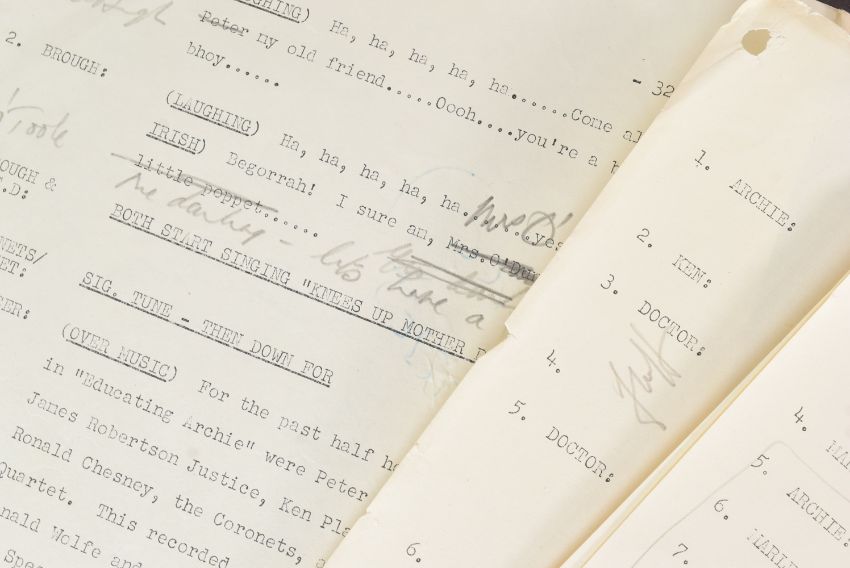 GHING) Ha, ha, ha, ha, ha.......Cone al
Peter ny old friend.....Oooh....you're a
bhoy......
- 32
2. BROUGH:
(LAUGHING) Ha, ha, ha, ha, ha.......yes
IRISH) Begorrah! I sure an, Mrs.O'Du
little poppet......
me darling - lets have a
O'Toole
OUGH &
.D:
BOTH START SINGING "KNEES UP MOTHER
NETS/
ET:
SIG. TUNE - THEN DOWN FOR
CER:
(OVER MUSIC) For the past half ho
in "Educating Archie" were Peter
Janes Robertson Justice, Ken Pla
Ronald Chesney, the Coronets, a
Quartet. This recorded
nald Wolfe and
Spec
1. ARCHIE:
2. KEN:
3. DOCTOR:
4.
5. DOCTOR:
6.
4. MAR
5. ARCHIE:
6. MARL
7.